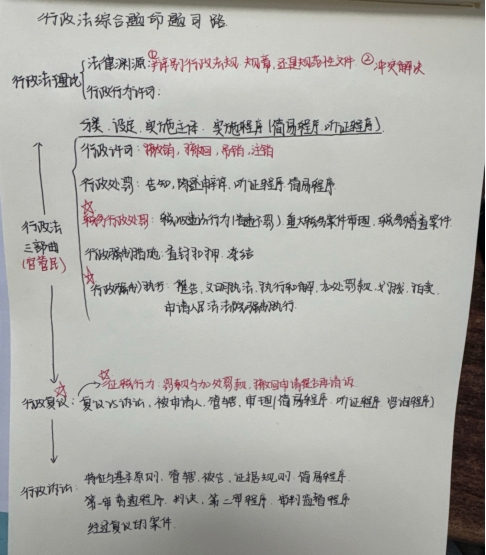 行政法综合题命题思路
行政法理论
法律渊源:①辨别行政法规、规章,还是规范性文件 ②冲突解决
行政行为许可:
分类、设定、实施主体、实施程序(简易程序、听证程序)
行政许可:撤销,撤回,吊销,注销
行政处罚:告知,陈述申辩,听证程序 简易程序
☆
税务行政处罚:税收违法行为(首违不罚)重大税务案件审理、税务稽查案件
行政强制措施:查封扣押、冻结
☆
行政强制执行:催告、文明执法、执行和解、加处罚款、划拨、拍卖、
申请人民法院强制执行
行政法
三部曲
(官管民)
☆
征税行为:罚款与加处罚款,撤回申请能否再请诉
☆
行政复议:复议与诉讼、被申请人、管辖、审理(简易程序、听证程序)
行政诉讼:
特征与基本原则、管辖、被告、证据规则 简易程序
第一审普通程序、判决、第二审程序、审判监督程序
经过复议的案件